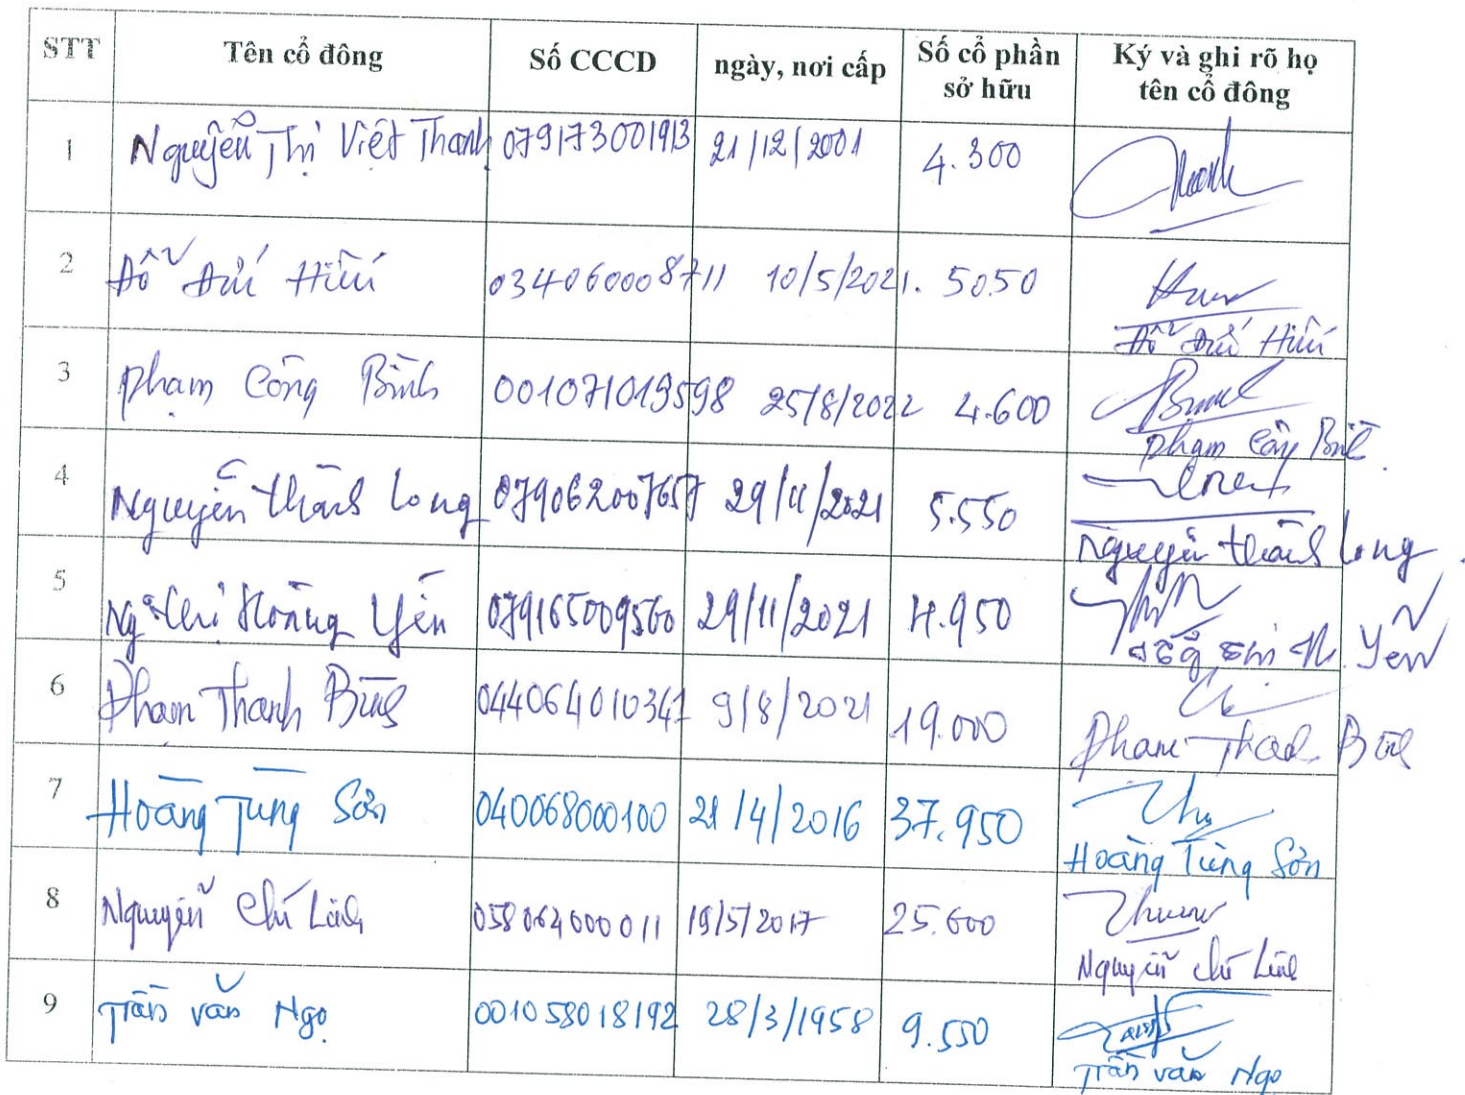 STT Tên cổ đông Số CCCD ngày, nơi cấp Số cổ phần sở hữu Ký và ghi rõ họ tên cổ đông
1 Nguyễn Thị Việt Thanh 079173001913 21/12/2001 4.300 Thanh
2 Đỗ Đức Hiếu 034060008711 10/5/2021. 5050
Đỗ Đức Hiếu
3 Phạm Công Bình 001071019598 25/8/2022 4.600
Phạm Công Bình.
4 Nguyễn Thành Long 079062007657 29/11/2021 5.550
Nguyễn Thành Long.
5 Thị Hoàng Yến 079165009560 29/11/2021 4.950
Thị H. Yến
6 Phạm Thanh Bình 044064010347 9/8/2021 19.000
Phạm Thanh Bình
7 Hoàng Tùng Sơn 040068000100 21/4/2016 37.950
Hoàng Tùng Sơn
8 Nguyễn Chí Linh 058064000011 19/5/2017 25.600
Nguyễn Chí Linh
9 Trần Văn Ngọ 001058018192 28/3/1958 9.550
Trần Văn Ngọ